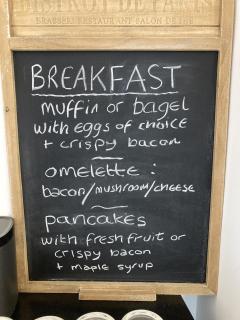 BRASSERIE RESTAURANT SALON DE THE
BREAKFAST
muffin or bagel
with eggs of choice
+ crispy bacon
omelette :
bacon/mushroom/cheese
pancakes
with fresh fruit or
crispy bacon
+ maple syrup